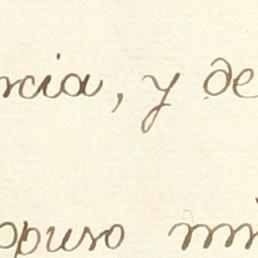 rcia, y de
opuso mi